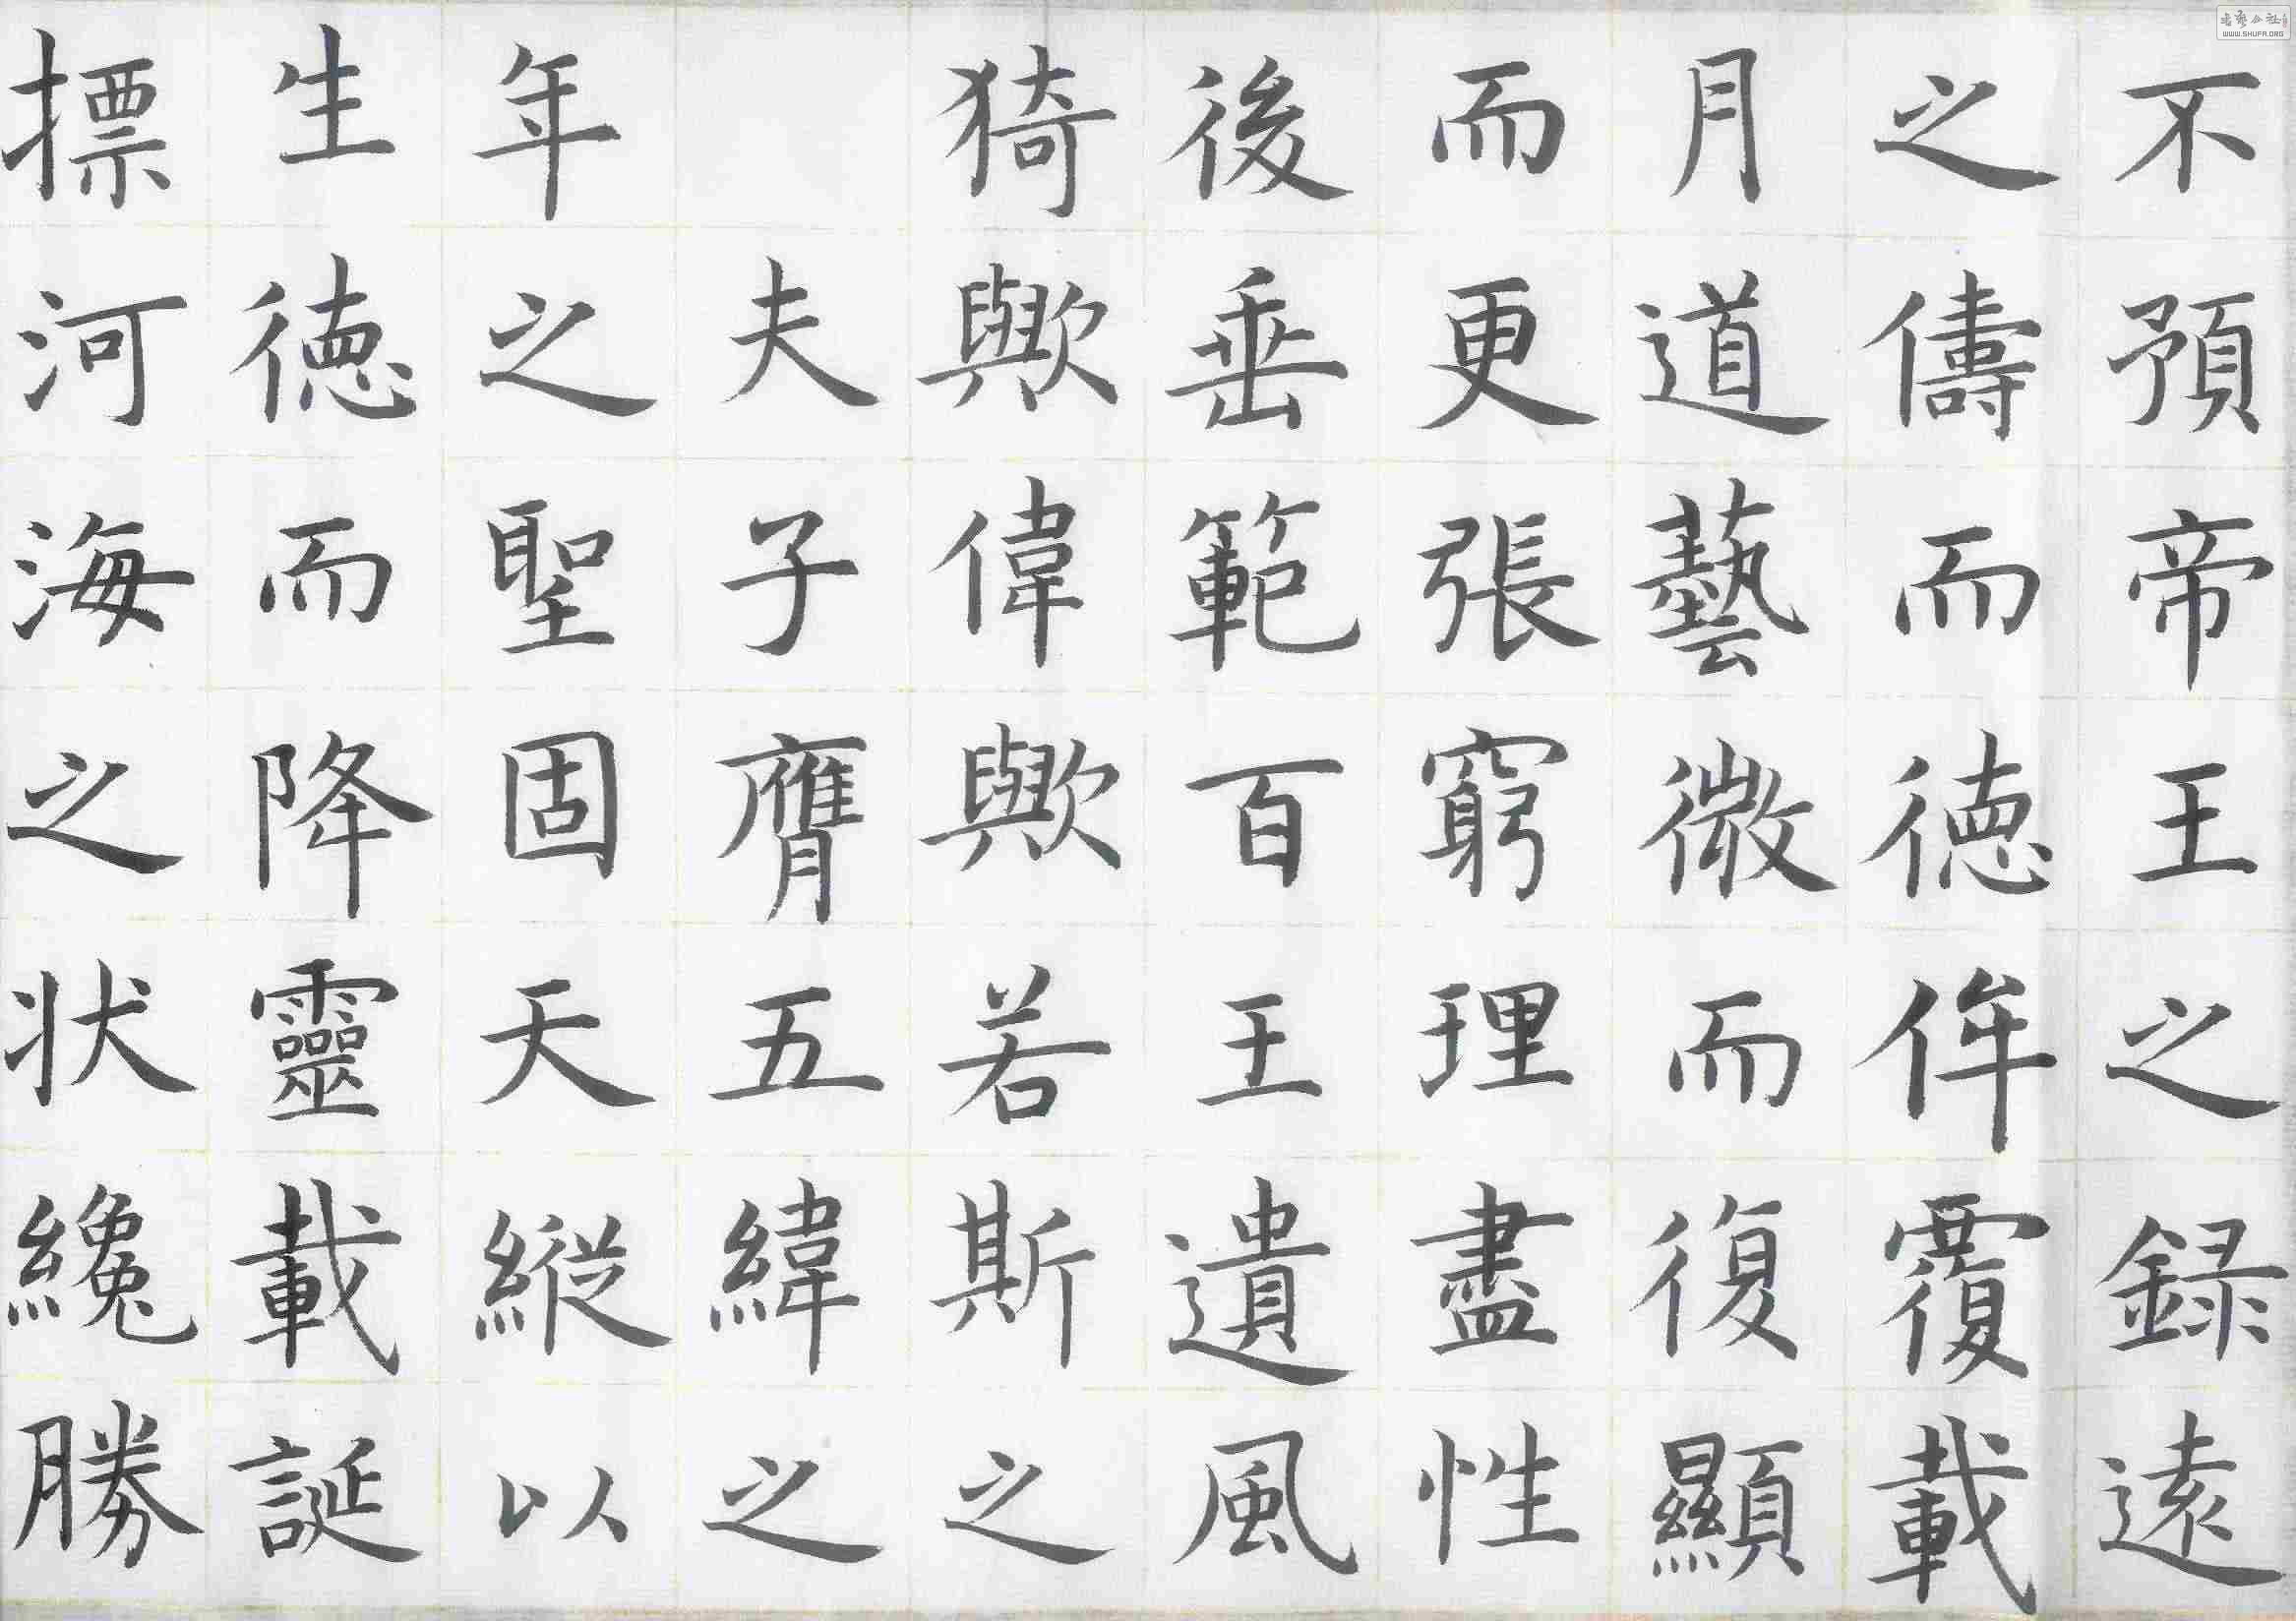 不預帝王之録遠
之儔而德侔覆載
月道藝微而復顯
而更張窮理盡性
後垂範百王遺風
猗歟偉歟若斯之
夫子膺五緯之
年之聖固天縱以
生德而降靈載誕
摽河海之状纔勝
WWW.SHUFA.ORG